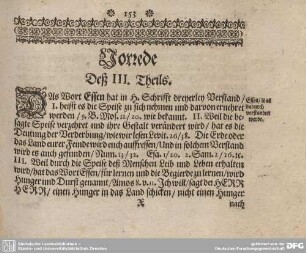 153
Vorrede
Deß III. Theils.
DAs Wort Essen hat in H. Schrifft dreyerley Verstand /
I. heisst es die Speise zu sich nehmen und darvon ernehret
werden / 5. B. Mos. 12/20. wie bekannt. II. Weil die be-
sagte Speise verzehret und ihre Gestalt verändert wird / hat es die
Deutung der Verderbung / wie wir lesen 10/18. Die Erde oder
das Land eurer Feinde wird euch auffressen / Und in solchem Verstand
wird es auch gefunden / Num. 13/32. Esa. 10/ 2. Sam. 1/26. rc.
III. Weil durch die Speise deß Menschen Leib und Leben erhalten
wird / hat das Wort Essen / für lernen und die Begierde zu lernen / wird
Hunger und Durst genannt / Amos 8. v. 11. Ich will / sagt der HERR
HERR / einen Hunger in das Land schicken / nicht einen Hunger
X nach
Essen /
verstanden
werde.